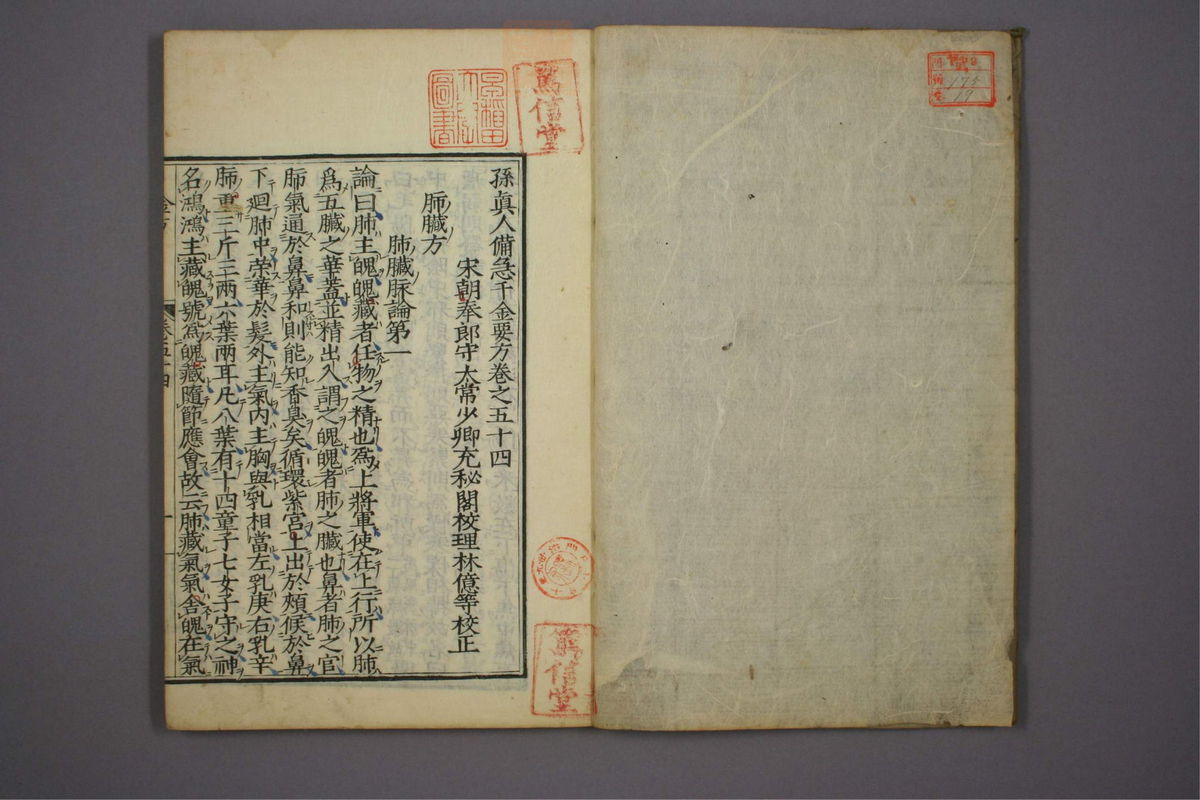 孫真人備急千金要方卷之五十四
宋朝奉郎守太常少卿充秘閣校理林億等校正
肺臟方
肺臟脉論第一
論曰肺主魄魄藏者任物之精也爲上將軍使在上行所以肺
爲五臟之華蓋並精出入謂之魄魄者肺之臟也鼻者肺之官
肺氣通於鼻鼻和則能知香臭矣循環紫宮上出於頰候於鼻
下廻肺中榮華於髮外主氣内主胸與乳相當左乳庚右乳辛
肺重三斤三兩六葉兩耳凡八葉有十四童子七女子守之神
名鴻鴻主藏魄號爲魄藏隨節應會故云肺藏氣氣舍魄在氣
篤信堂
篤信堂
圖書
174
19